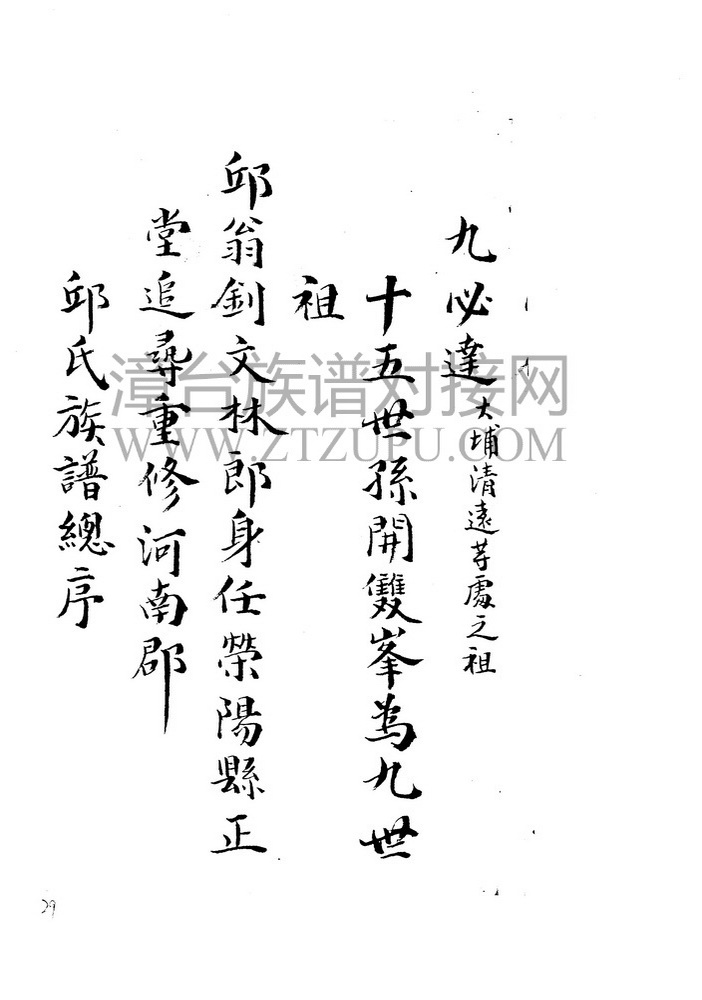 九必達 大埔清遠等處之祖
十五世孫開雙峯為九世
祖
邱翁釗文林郎身任荣陽縣正
堂追尋重修河南郡
邱氏族譜總序
漳台族谱对接网
WWW.ZTZUPU.COM
29